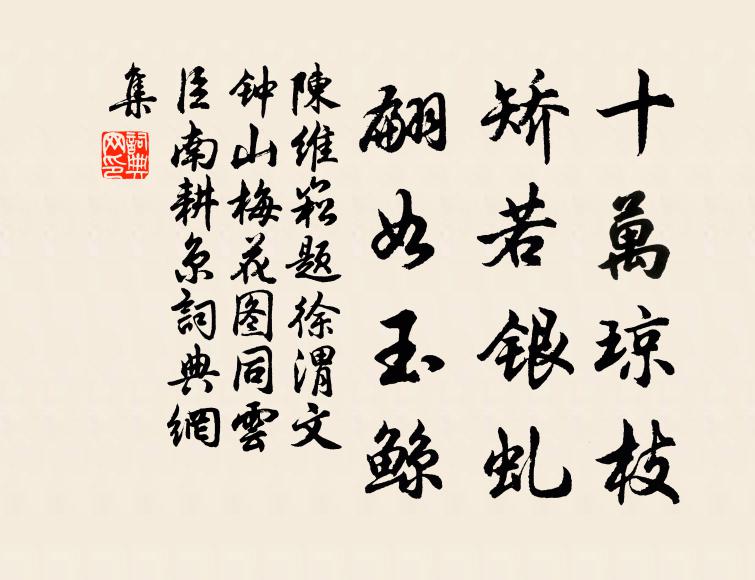 十萬琼枝
矫若银虬
翩如玉鲸
陳維崧题徐渭文
钟山梅花图同雲
臣南耕京詞典網
集
詞典網印